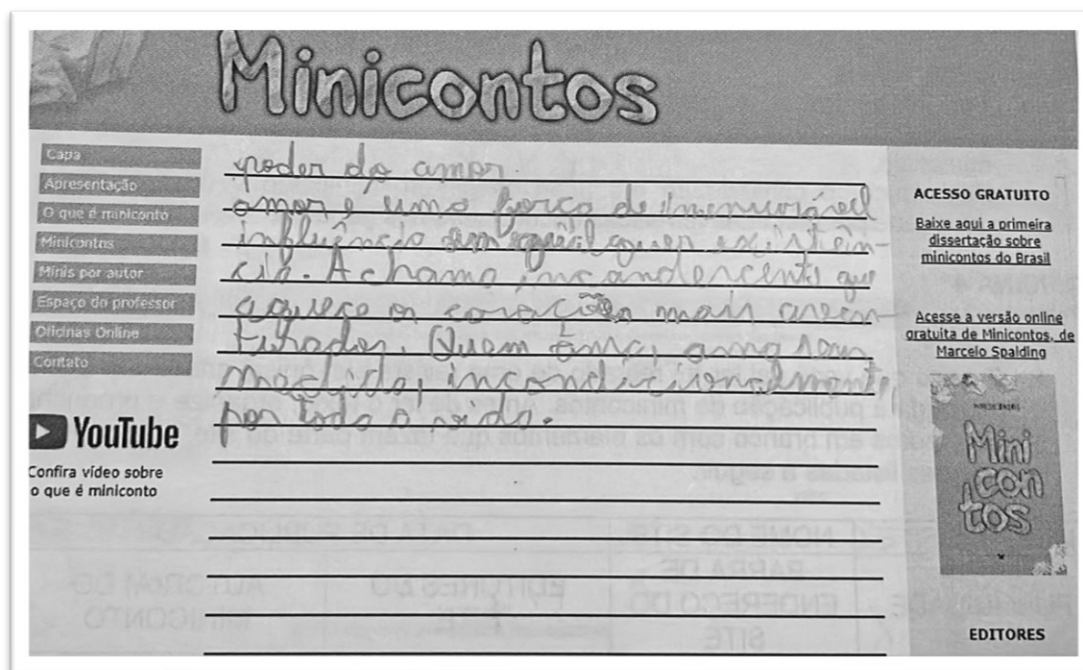 Minicontos
Capa
Apresentação
O que é miniconto
Minicontos
Minis por autor
Espaço do professor
Oficinas Online
Contato
YouTube
Confira vídeo sobre
o que é miniconto
poder do amor
amor e uma força de imensurável
influência sem qualquer existên-
cia. A chama incandescente que
aquece os corações mais aven-
turados. Quem ama, ama sem
medida, incondicionalmente,
por toda a vida.
ACESSO GRATUITO
Baixe aqui a primeira
dissertação sobre
minicontos do Brasil
Acesse a versão online
gratuita de Minicontos, de
Marcelo Spalding
Mini
con
tos
EDITORES